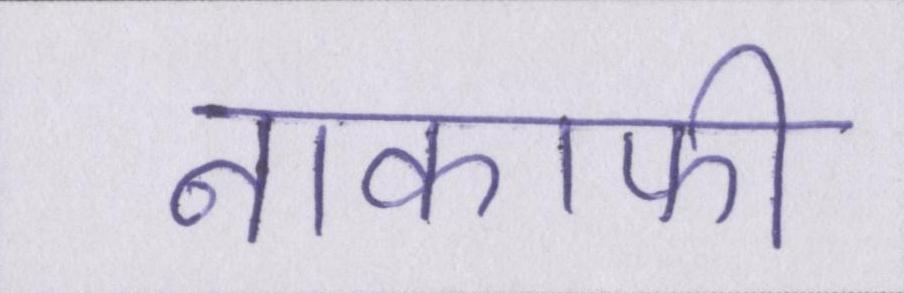 नाकाफी